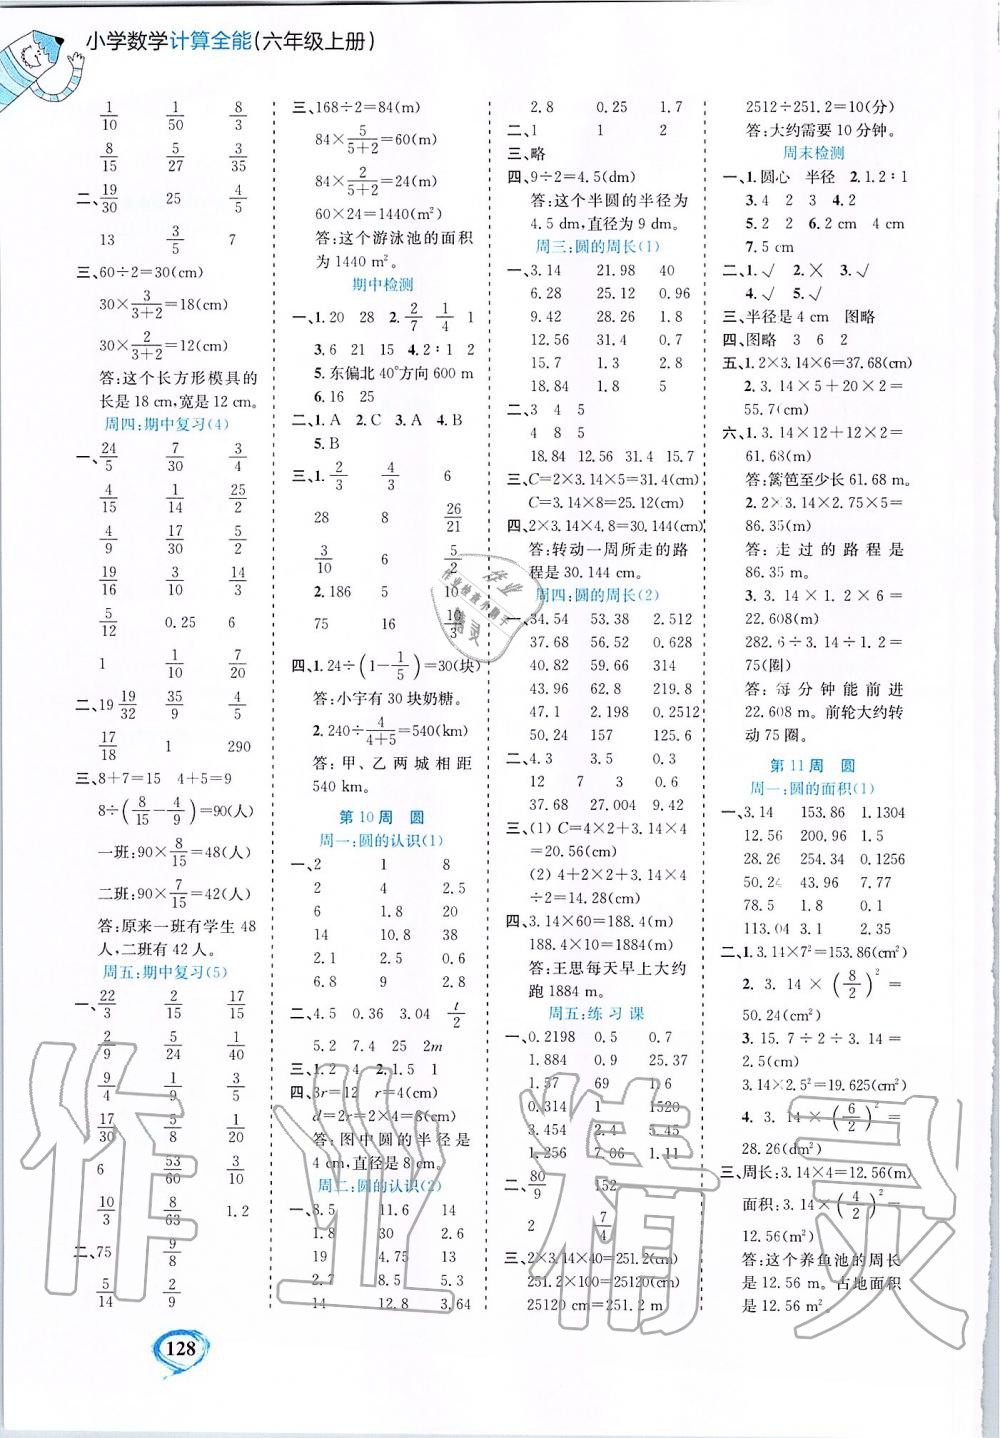 小学数学计算全能(六年级上册)
1/10 1/50 8/3
8/15 5/27 3/35
二、19/30 25 4/5
13 3/5 7
三、60÷2=30(cm)
30×3/(3+2)=18(cm)
30×2/(3+2)=12(cm)
答:这个长方形模具的
长是18 cm,宽是12 cm。
周四:期中复习(4)
一、24/5 7/30 3/4
4/15 1/14 25/2
4/9 17/30 5/2
19/16 3/10 14/3
5/12 0.25 6
1 1/10 7/20
二、19 19/32 35/9 4/5
17/18 1 290
三、8+7=15 4+5=9
8÷(8/15-4/9)=90(人)
一班:90×8/15=48(人)
二班:90×7/15=42(人)
答:原来一班有学生48
人,二班有42人。
周五:期中复习(5)
一、22/3 2/15 17/15
2/9 5/24 1/40
9/4 1/9 4/5
17/30 5/8 1/20
6 53/60 3/10
10/3 8/63 1.2
二、75 1/4 9/8
5/14 2/9
三、168÷2=84(m)
84×5/(5+2)=60(m)
84×2/(5+2)=24(m)
60×24=1440(m²)
答:这个游泳池的面积
为1440 m²。
期中检测
一、1.20 28 2.2/7 1/4 1
3.6 21 15 4.2∶1 2
5.东偏北40°方向600 m
6.16 25
二、1.A 2.C 3.A 4.B
5.B
三、1.2/3 4/3 6
28 8 26/21
3/10 6 5/2
2.186 5 10
75 16 10/3
四、1.24÷(1-1/5)=30(块)
答:小宇有30块奶糖。
2.240÷4/(4+5)=540(km)
答:甲、乙两城相距
540 km。
第10周 圆
周一:圆的认识(1)
一、2 1 8
2 4 2.5
6 1.8 20
14 10.8 38
2.1 2.5 0.6
6.8 9 2.8
二、4.5 0.36 3.04 t/2
5.2 7.4 25 2m
三、1.2 4 2.1.5 1
四、3r=12 r=4(cm)
d=2r=2×4=8(cm)
答:图中圆的半径是
4 cm,直径是8 cm。
周二:圆的认识(2)
一、8.5 11.6 14
1.8 30 2.6
19 4.75 13
2.7 8.5 5.3
14 12.8 3.64
2.8 0.25 1.7
二、1 1 2
三、略
四、9÷2=4.5(dm)
答:这个半圆的半径为
4.5 dm,直径为9 dm。
周三:圆的周长(1)
一、3.14 21.98 40
6.28 25.12 0.96
9.42 28.26 1.8
12.56 31.4 0.7
15.7 1.3 2.8
18.84 1.8 5
二、3 4 5
4 8 5
18.84 12.56 31.4 15.7
三、C=2×3.14×5=31.4(cm)
C=3.14×8=25.12(cm)
四、2×3.14×4.8=30.144(cm)
答:转动一周所走的路
程是30.144 cm。
周四:圆的周长(2)
一、34.54 53.38 2.512
37.68 56.52 0.628
40.82 59.66 314
43.96 62.8 219.8
47.1 2.198 0.2512
50.24 157 125.6
二、4.3 3.5 0.5
12 7 3
37.68 27.004 9.42
三、(1) C=4×2+3.14×4
=20.56(cm)
(2) 4+2×2+3.14×4
÷2=14.28(cm)
四、3.14×60=188.4(m)
188.4×10=1884(m)
答:王思每天早上大约
跑1884 m。
周五:练习课
一、0.2198 0.5 0.7
1.884 0.9 25.37
1.57 69 1.6
0.314 1 1520
3.454 2.4 5.45
1.256 7.06 1.11
二、80/9 152
2 7/4
三、2×3.14×40=251.2(cm)
251.2×100=25120(cm)
25120 cm=251.2 m
2512÷251.2=10(分)
答:大约需要10分钟。
周末检测
一、1.圆心 半径 2.1.2∶1
3.4 2 3 4.2
5.2 2 6.2 cm 4 cm
7.5 cm
二、1.√ 2.× 3.√
4.√ 5.√
三、半径是4 cm 图略
四、图略 3 6 2
五、1.2×3.14×6=37.68(cm)
2.3.14×5+20×2=
55.7(cm)
六、1.3.14×12+12×2=
61.68(m)
答:篱笆至少长61.68 m。
2.2×3.14×2.75×5=
86.35(m)
答:走过的路程是
86.35 m。
3.3.14×1.2×6=
22.608(m)
282.6÷3.14÷1.2=
75(圈)
答:每分钟能前进
22.608 m。前轮大约转
动75圈。
第11周 圆
周一:圆的面积(1)
一、3.14 153.86 1.1304
12.56 200.96 1.5
28.26 254.34 0.1256
50.24 43.96 7.77
78.5 1.8 0.1
113.04 3.1 2.35
二、1.3.14×7²=153.86(cm²)
2.3.14×(8/2)²=
50.24(cm²)
3.15.7÷2÷3.14=
2.5(cm)
3.14×2.5²=19.625(cm²)
4.3.14×(6/2)²=
28.26(dm²)
三、周长:3.14×4=12.56(m)
面积:3.14×(4/2)²=
12.56(m²)
答:这个养鱼池的周长
是12.56 m。占地面积
是12.56 m²。
128
作业精灵